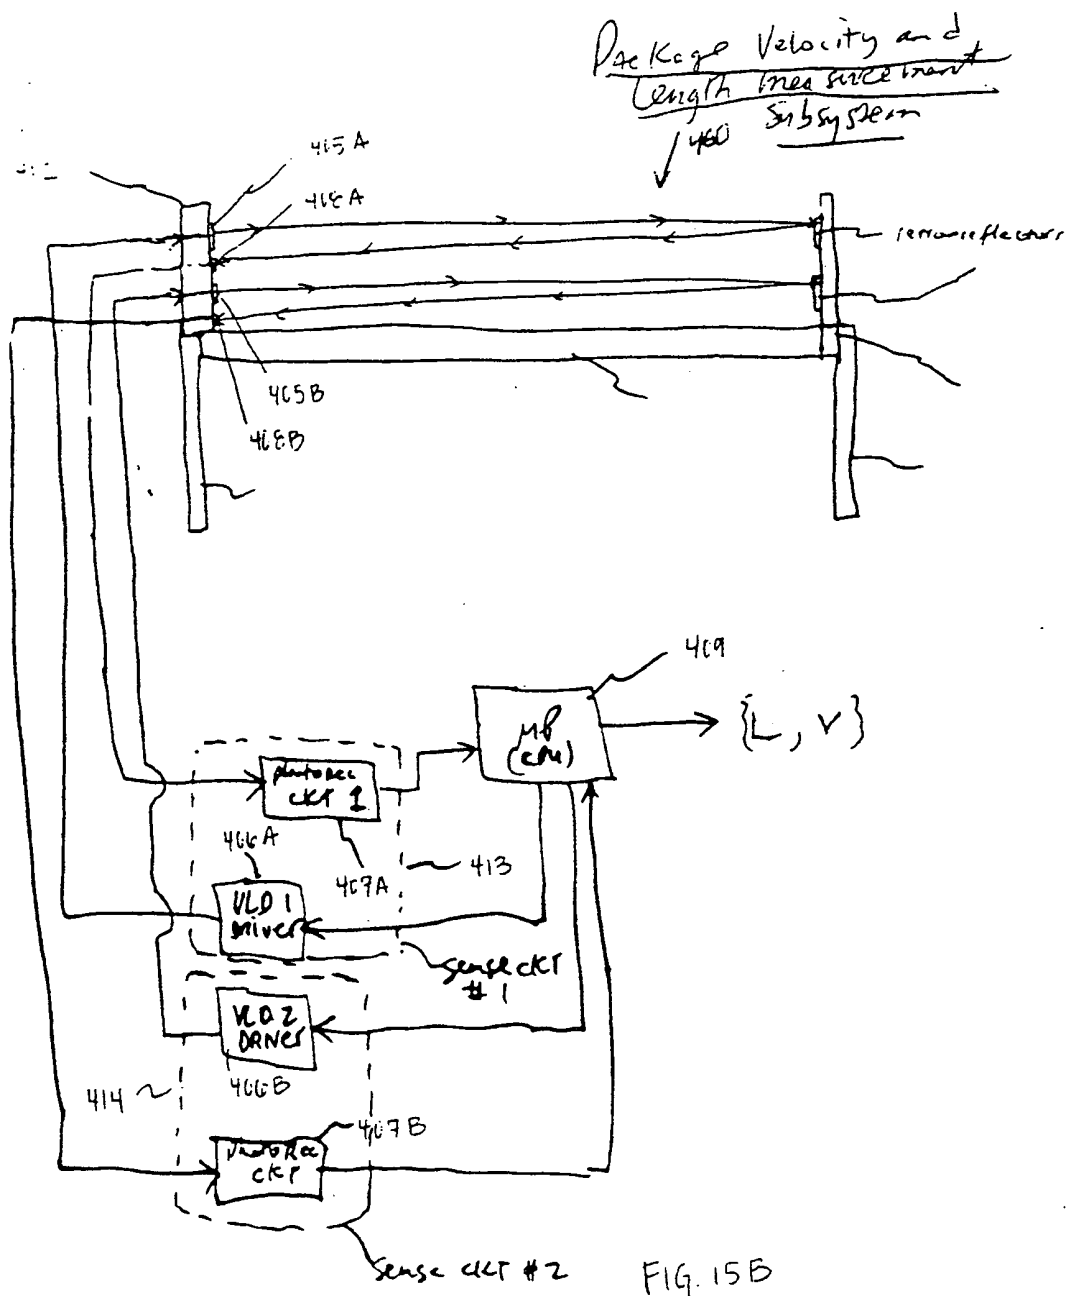 Package Velocity and
Length Measurement
Subsystem
400
405A
408A
retroreflectors
405B
408B
409
μP
(CPU)
{L, V}
photorec
ckt 1
406A
407A
413
VLD 1
Driver
sense ckt
# 1
VLD 2
DRIVER
406B
414
407B
photorec
ckt
Sense ckt #2
FIG. 15B